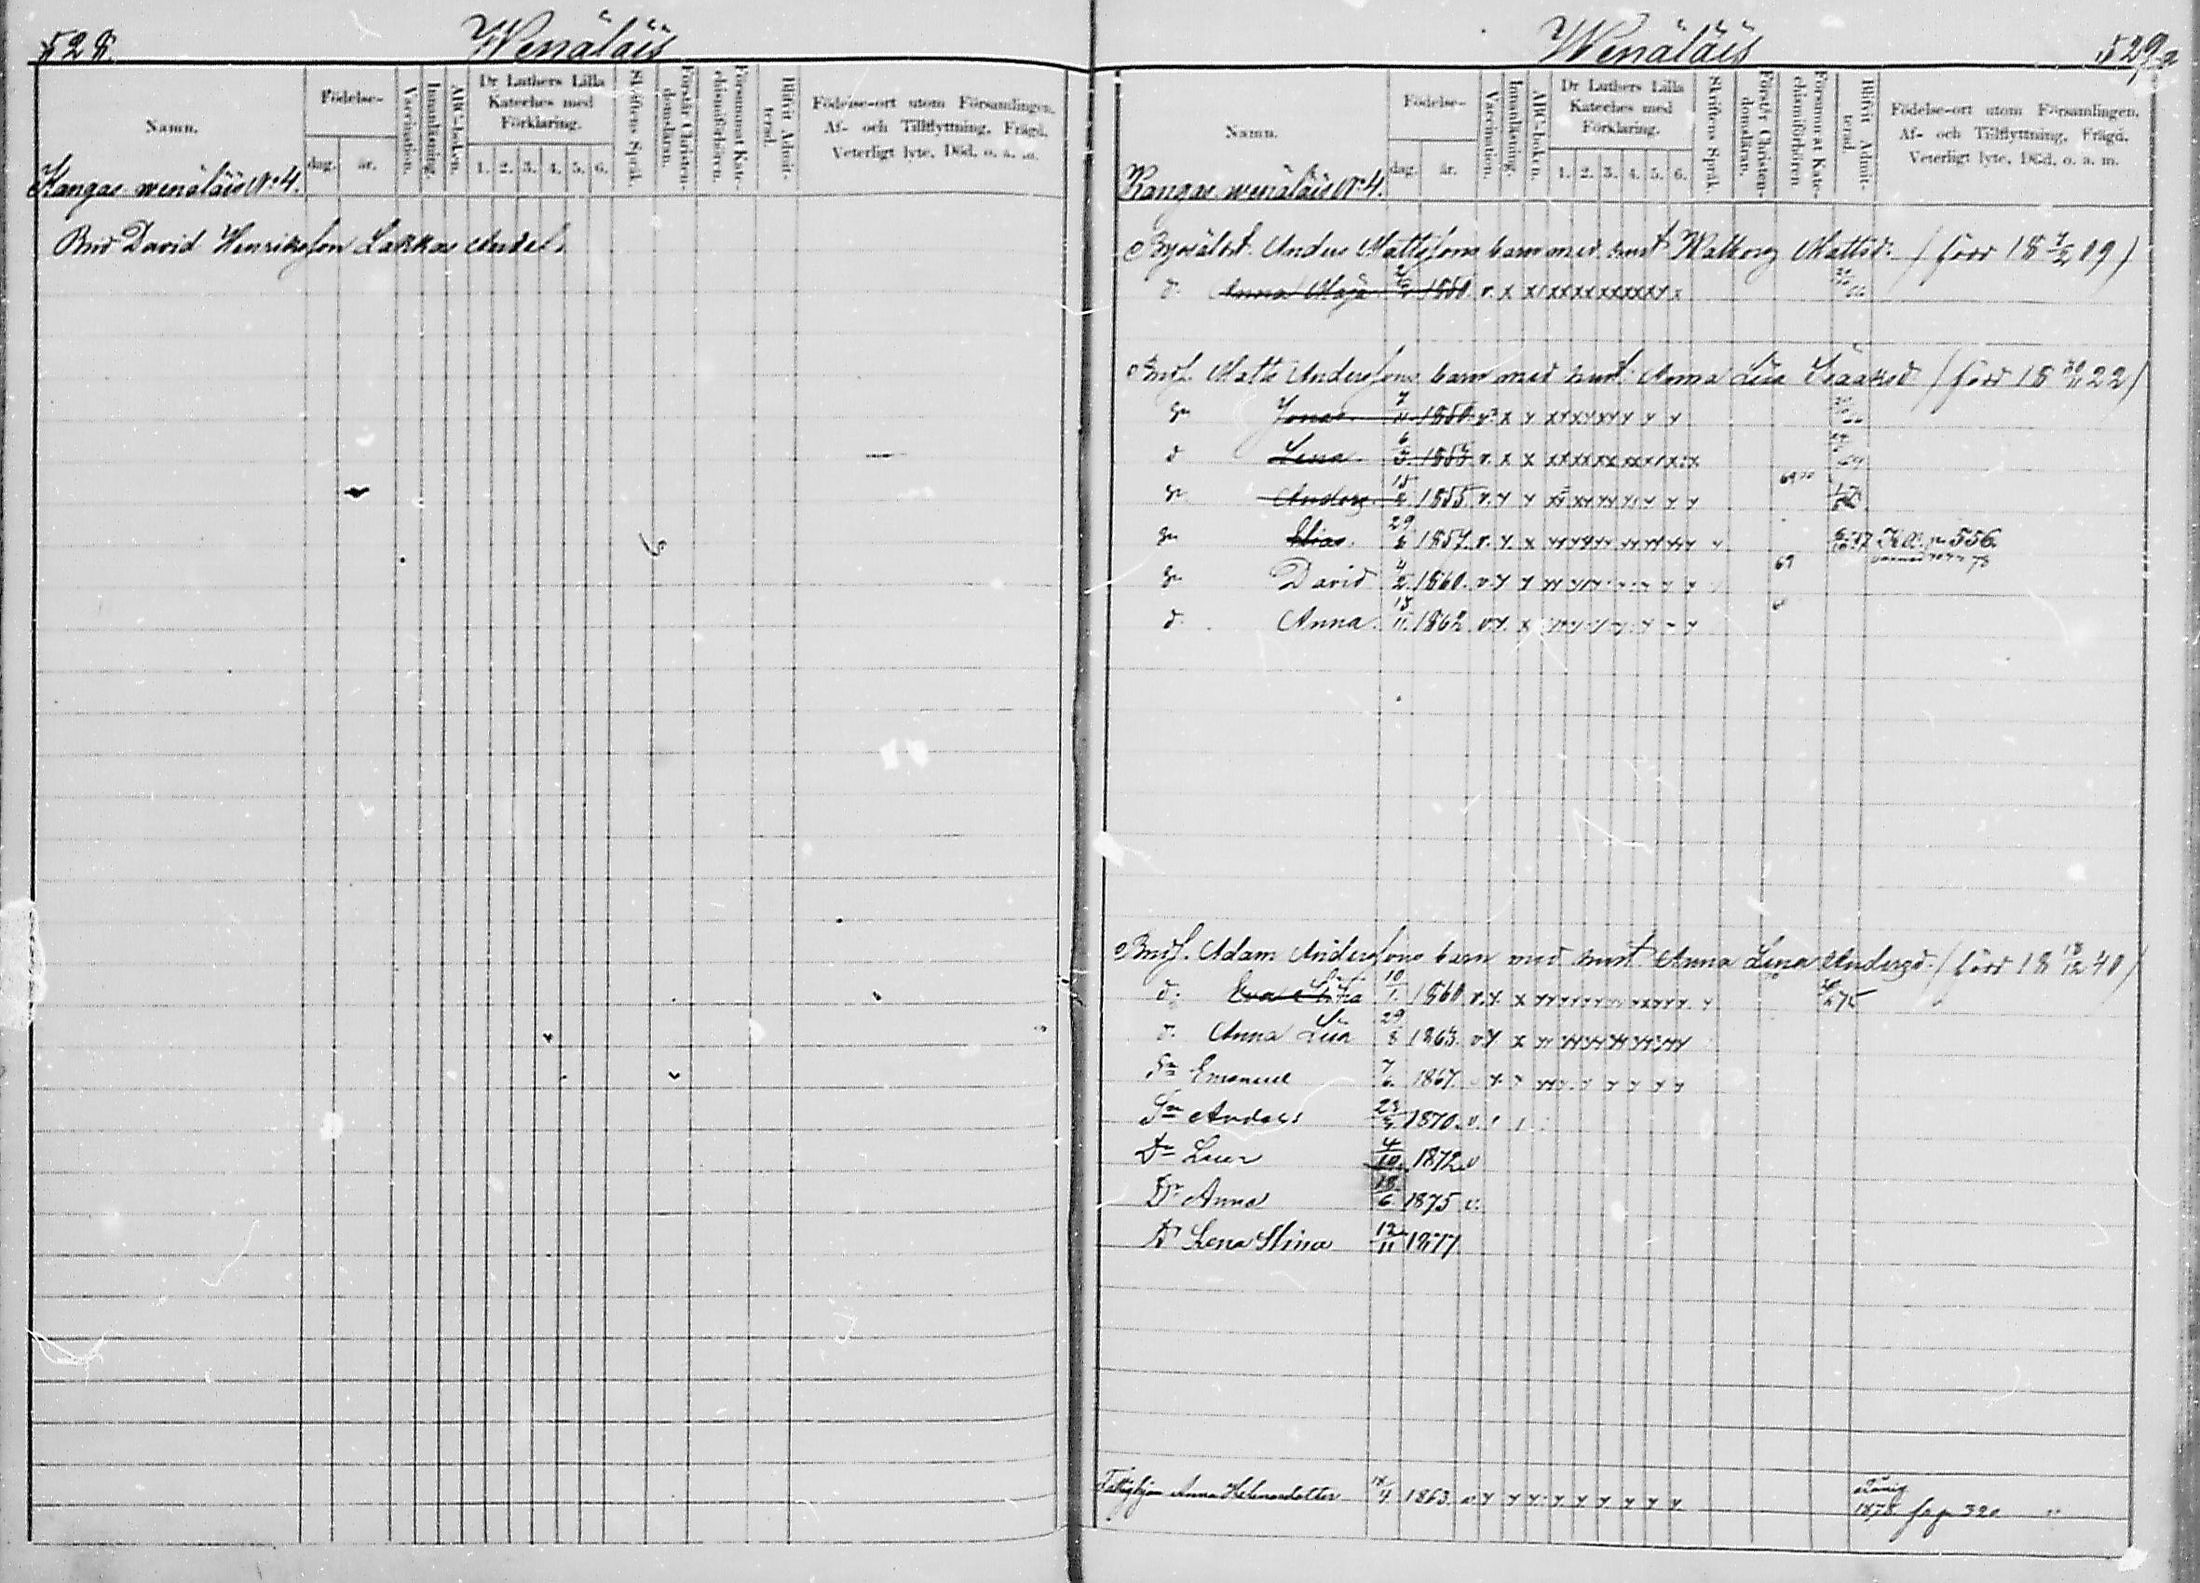 528.
Wenäläis
Namn.
Födelse-
dag.
år.
Vaccination.
Innanläsning.
ABC-boken.
Dr Luthers Lilla
Kateches med
Förklaring.
1. 2. 3. 4. 5. 6.
Skriftens Språk.
Förstår Christen-
domsläran.
Försummat Kate-
chismiförhören.
Blifvit Admit-
terad.
Födelse-ort utom Församlingen.
Af- och Tillflyttning. Frägd.
Veterligt lyte. Död. o. a. m.
Kangas wenäläis No 4.
Bnd David Henriksson Lakkas Andel.
Wenäläis
529a
Namn.
Födelse-
dag.
år.
Vaccination.
Innanläsning.
ABC-boken.
Dr Luthers Lilla
Kateches med
Förklaring.
1. 2. 3. 4. 5. 6.
Skriftens Språk.
Förstår Christen-
domsläran.
Försummat Kate-
chismiförhören
Blifvit Admit-
terad.
Födelse-ort utom Församlingen.
Af- och Tillflyttning. Frägd.
Veterligt lyte. Död. o. a. m.
Kangas wenäläis No 4.
Anders Mattssons barn med hust. Walborg Mattsd. (född 18 7/2 09)
d. Anna Maja 1850. v. x x xx xx xx xx xx x
Matts Anderssons barn med hust. Anna Lisa Isaaksd (född 18 30/11 22)
Jonas. 1850.
d Lena. 6/3. 1853 v. x x
Anders. 15 1855 v.
Elias. 29/6 1857. v. p 556.
David 4/2. 1860. v. 69
d. Anna. 15/11. 1862 v.
Adam Anderssons barn med hust. Anna Lena Andersd. (född 18 18/12 40)
d. Eva Stina 10/1. 1860 v. x 75
d. Anna Lisa 29/8 1863. v. x
Sn Emanuel 7/6. 1867.
Sn Anders 23 1870. v.
Dr 4/10. 1872. v
Dr Anna 18/6. 1875 v.
Dr Lena Stina 12/11 1877
Fattighjon Anna Helenasdotter 1863. v.
1878 fr p 320